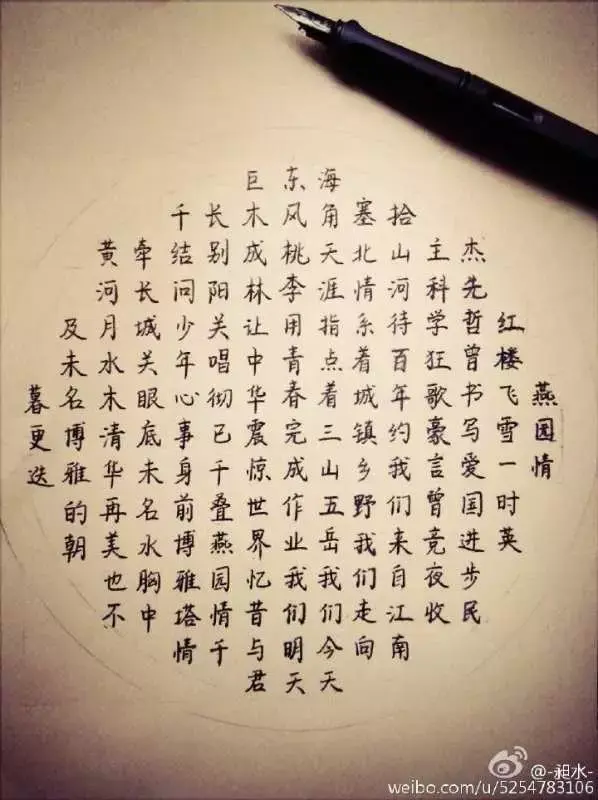 燕园情
红楼飞雪一时英
杰先哲曾书写爱国进步民
主科学狂歌豪言曾竞夜收
拾山河待百年约我们来自江南
塞北情系着城镇乡野我们走向
海角天涯指点着三山五岳我们今天
东风桃李用青春完成作业我们明天
巨木成林让中华震惊世界忆昔与君
长别阳关唱彻已千叠燕园情千
千结问少年心事身前博雅塔情
牵长城关眼底未名水胸中
黄河月水木清华再美也不
及未名博雅的朝
暮更迭
@-昶水-
weibo.com/u/5254783106